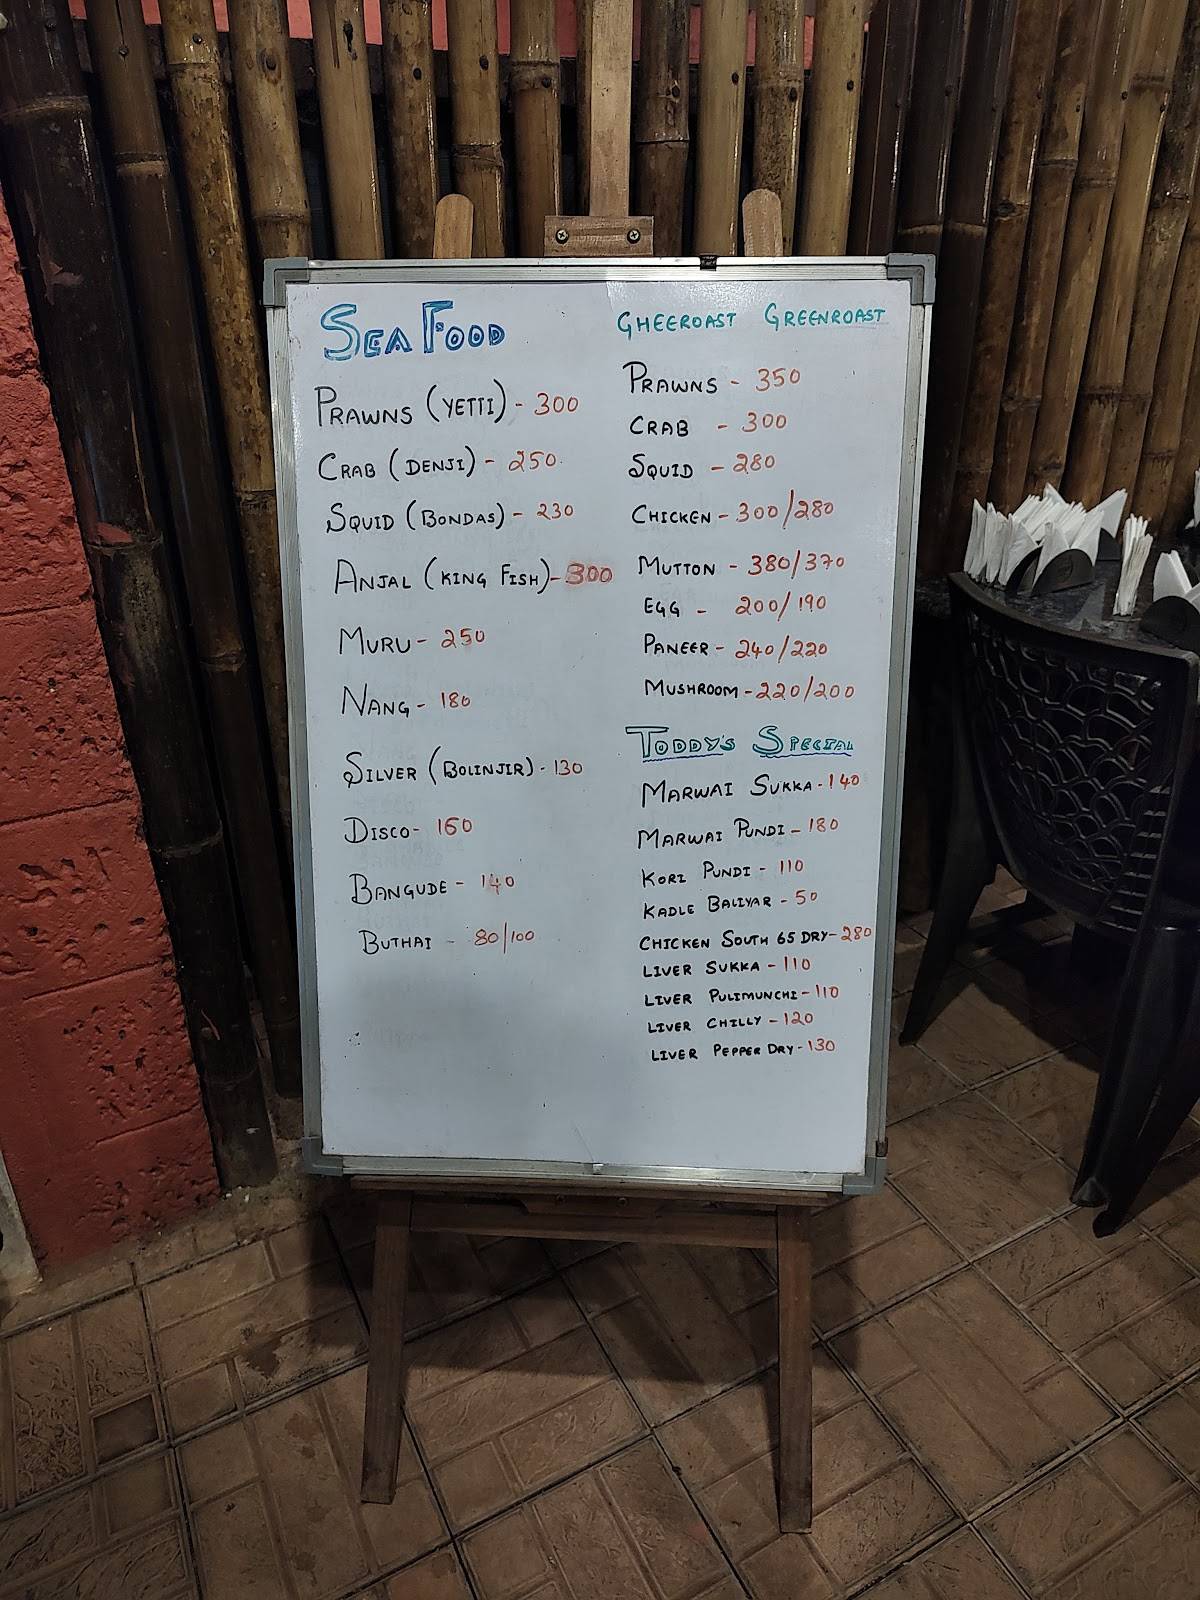 SEA FOOD
PRAWNS (YETTI) - 300
CRAB (DENJI) - 250
SQUID (BONDAS) - 230
ANJAL (KING FISH) - 300
MURU - 250
NANG - 180
SILVER (BOLINJIR) - 130
DISCO - 160
BANGUDE - 140
BUTHAI - 80/100
GHEEROAST GREENROAST
PRAWNS - 350
CRAB - 300
SQUID - 280
CHICKEN - 300/280
MUTTON - 380/370
EGG - 200/190
PANEER - 240/220
MUSHROOM - 220/200
TODDY'S SPECIAL
MARWAI SUKKA - 140
MARWAI PUNDI - 180
KORI PUNDI - 110
KADLE BALIYAR - 50
CHICKEN SOUTH 65 DRY - 280
LIVER SUKKA - 110
LIVER PULIMUNCHI - 110
LIVER CHILLY - 120
LIVER PEPPER DRY - 130